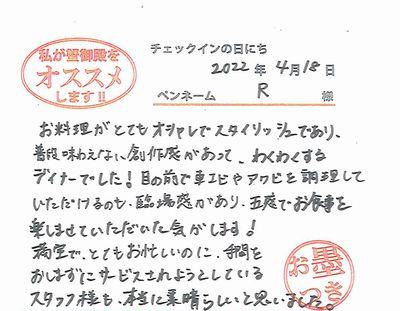 私が蟹御殿を
オススメ
します!!
チェックインの日にち
2022年4月18日
ペンネーム R 様
お料理がとてもオシャレでスタイリッシュであり、
普段味わえない創作感があって、わくわくする
ディナーでした!目の前で車エビやアワビを調理して
いただけるのも、臨場感があり、五感でお食事を
楽しませていただいた気がします!
満室で、とてもお忙しいのに、手間を
おしまずにサービスされようとしている
スタッフ様も、本当に素晴らしいと思いました。
お墨つき